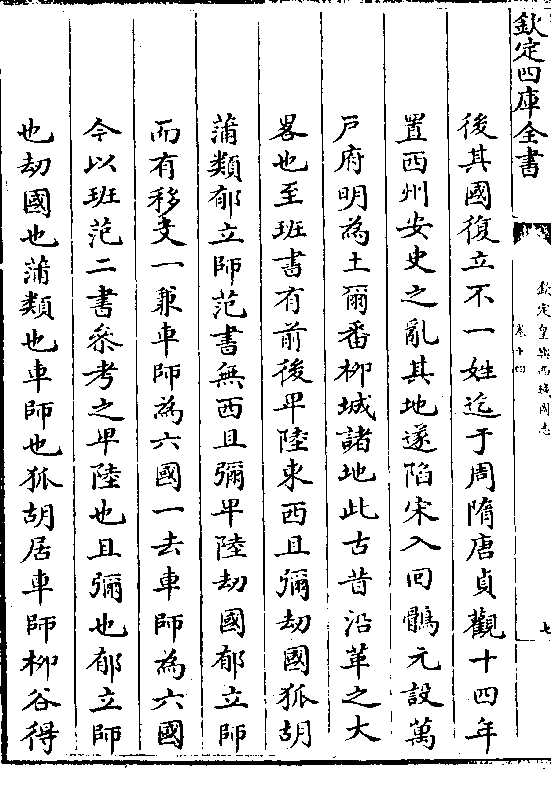 欽定四庫全書
欽定皇輿西域圖志
卷十四
七
後其國復立不一姓迄于周隋唐貞觀十四年
置西州安史之亂其地遂陷宋入回鶻元設萬
戸府明為土爾番柳城諸地此古昔沿革之大
畧也至班書有前後卑陸東西且彌劫國狐胡
蒲類郁立師范書無西且彌卑陸劫國郁立師
而有移支一兼車師為六國一去車師為六國
今以班范二書參考之卑陸也且彌也郁立師
也劫國也蒲類也車師也狐胡居車師柳谷得